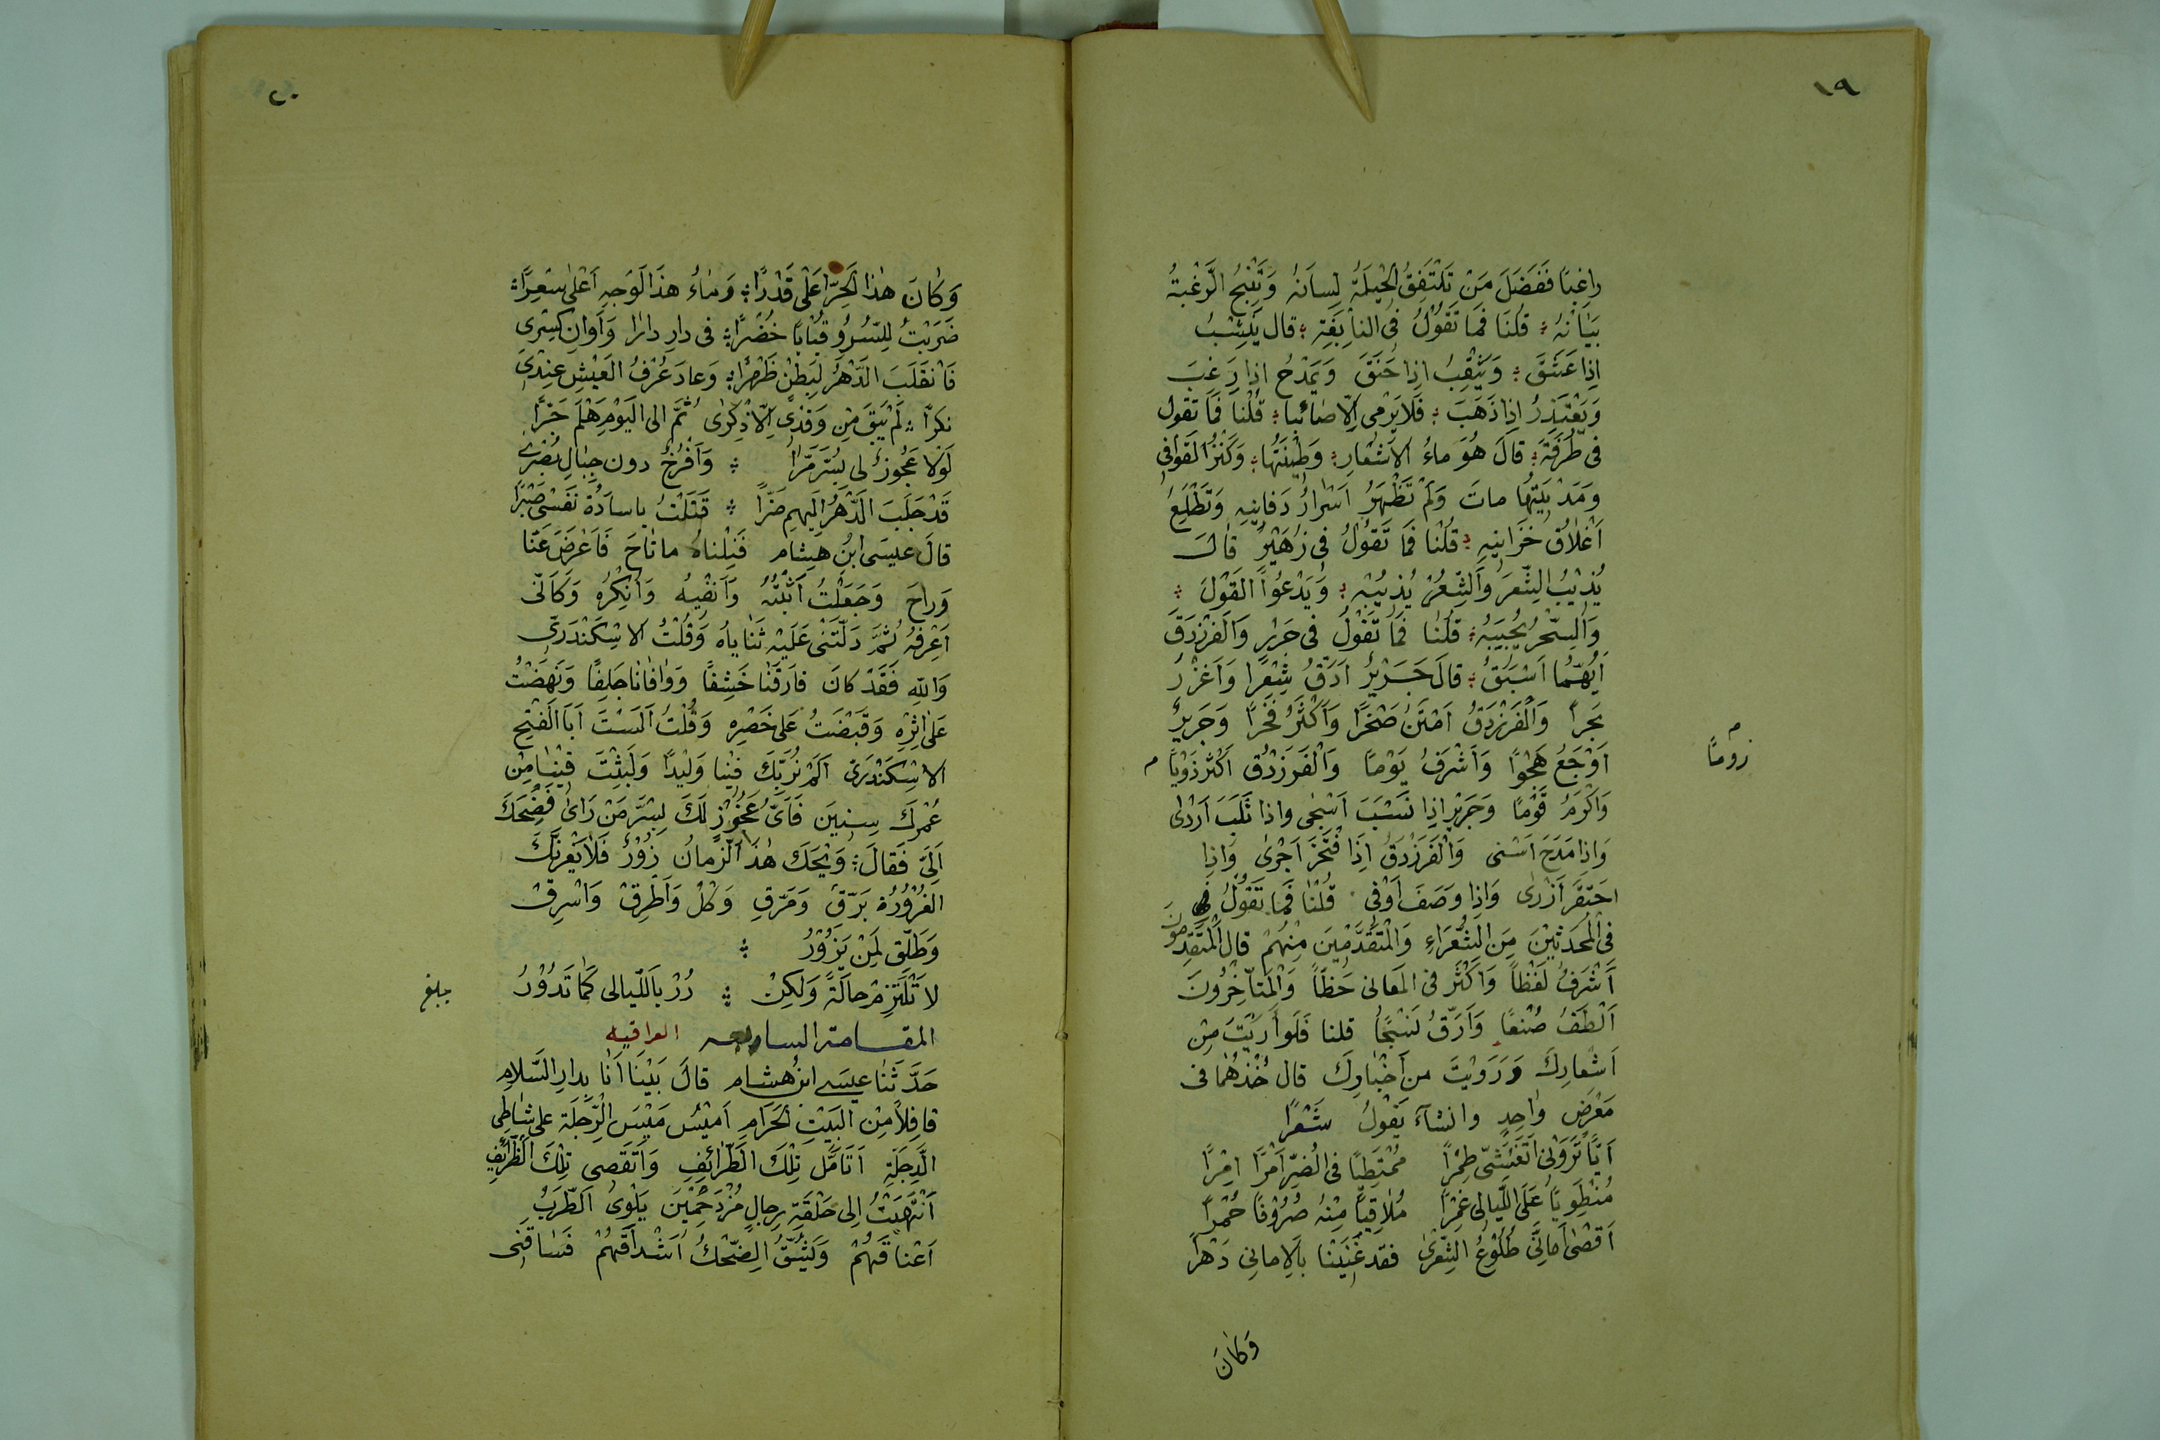 ١٩
راغِبًا فَفَضَلَ مَنْ تَلْتَفِقُ الحِيلَةُ لِسانَهُ وَتَنْتِجُ الرَّغْبَةُ
بَيَانَهُ قُلْنَا فَمَا تَقُولُ فِى النَّابِغَةِ قال يَثْلِبُ
اِذا عَشَقَ وَيَثْقِبُ اِذا حَنَقَ وَيَمْدَحُ اِذا رَغِبَ
وَيَعْتَذِرُ اِذا ذَهَبَ فَلَا يَرْمِى اِلَّا صَائِبًا قُلْنَا فَمَا تَقُولُ
فِى طَرَفَةَ قالَ هُوَ ماءُ الاَشْعَارِ وَطِينَتُها وَكَنْزُ القَوافِى
وَمَدْيَنَتُها ماتَ وَلَمْ تَظْهَرْ اَسْرارُ دَفاينِهِ وَتَطْلِعْ
اَغْلاقُ خَزَاينِهِ قُلْنَا فَمَا تَقُولُ فى زُهَيْرٍ قالَ
يُذِيْبُ الشِّعْرَ وَالشِّعْرُ يُذِيبُهُ وَيَدْعُوا القَوْلَ
وَالسِّحْرُ يُجِيبُهُ قُلْنَا فَمَا تَقُوْلُ فى جَرِيرٍ وَالفَرَزْدَقَ
اَيُّهُمَا اَسْبَقُ قالَ جَرِيْرُ اَدَقُّ شِعْرًا وَاَغْزَرُ
بَحْراً وَالْفَرَزْدَقُ اَمْتَنُ صَخْرًا وَاَكْثَرُ فَخْرًا وَجَرِيرُ
اَوْجَعُ هَجْوًا وَاَشْرَفُ يَوْمًا وَالْفَرَزْدَقُ اَكْثَرُ رَوْيًا م
م
رومًا
وَاَكْرَمُ قَوْمًا وَجَرِيرٌ اِذا نَسَبَ اَشْجٰى واِذا ثَلَبَ اَرْدٰى
وَاِذا مَدَحَ اَسْنى وَالْفَرَزْدَقُ اِذَا فْتَخَرَ اَجْزى وَاِذا
احْتَقَرَ اَزْرٰى وَاِذا وَصَفَ اَوْفى قُلْنَا فَمَا تَقُولُ فِى
فِى الْمُحَدَثِيْنَ مِنَ الشُّعَرَاءِ وَالْمُتَقَدِّمِيْنَ مِنْهُمْ قال الْمُتَقَدِّمُونَ
اَشْرَفُ لَفْظاً وَاَكْثَرُ فى المَعانى حَظّاً وَالْمُتَأَخِّرُونَ
اَلْطَفُ صُنْعًا وَاَرَقُّ نَسْجًا قلنا فَلَوْ اَرَيْتَ مِنْ
اَشْعارِكَ وَرَوَيْتَ من اَخْبارِكَ قال خُذْهُمَا فى
مَعْرَضٍ وٰاحِدٍ وانشآءَ يَقُولُ شَعْرًا
اَمَا تَرَوْنِى اَتَغَشّى طِمْرًا مُمْتَطِيًا فى الضُّرِّ اَمْرًا اِمْرًا
مُنْطَوِيًا عَلَى اللَّيالى غِمْرًا مُلاقِيًا مِنْهٰا صُرُوْفًا حُمْراً
اَقْصٰى اَمَانِىَّ طُلُوْعُ الشِّعْرٰى فقد عَنَيْنَا بِالاَمانِى دَهْرَاً
وَكَانَ
٢٠
وَكَانَ هٰذا الحُرُّ اَعْلٰى قَدْرًا وَمَاءُ هذَا الوَجهِ اَعْلى سِعْرًا
ضَرَبْتُ لِلسُّرُوِ قُبَابًا خُضْرًا فى دارِ دَارَا وَاَوانِ كِسْرٰى
فَانْقَلَبَ الدَّهْرُ لِبَطْنٍ ظَهْرًا وَعادَ عُرْفُ العَيْشِ عِنْدِىْ
نكرًا لَمْ يَبْقَ مِنْ وَفْدى اِلَّا ذِكْرٰى ثُمَّ الى اليَوْمِ هَلُمَّ جَرًّا
لَوْلا عَجُوزٌ لى بِسُرَّ مَرَّا وَاَفْرُخٌ دون جِبالِ بُصْرٰى
قَدْ جَلَبَ الدَّهْرُ اِلَيْهِم ضَرًّا قَتَلْتُ ياسادَةُ نَفْسِى صَبْرًا
قالَ عيسَى ابنُ هِشام فَنِلْناهُ ماتاحَ فَاَعْرَضَ عَنَّا
وَراحَ وَجَعَلْتُ اُثْبِتُهُ وَاَنفْيِهِ وَاُنْكِرُه وَكَاَنّى
اَعْرِفُهُ ثُمَّ دَلَّتْنى عَلَيْهِ ثَنَاياهُ وَقُلْتُ الاِسْكَنْدَرِىّ
وَاللهِ فَقَدْ كانَ فارَقَنَا خَشِفًا وَوَافَانَا جَلِفًا وَنَهَضْتُ
عَلىٰ اِثْرِهِ وَقَبَضْتُ عَلى خَصْرِهِ وَقُلْتُ اَلَسْتَ اَبَا الْفَتْحِ
الاِسْكَنْدَرِىّ اَلَمْ نُرَبِّكَ فينا وَليدًا وَلَبِثْتَ فينَا مِنْ
عُمْرِكَ سِنينَ فَاَىُّ عَجُوْزٍ لَكَ بِسُرَّ مَنْ رَاىٰ فَضَحِكَ
اِلَىَّ فَقالَ وَيْحَكَ هٰذا الزَّمانُ زُوْرٌ فَلا يَغُرَّنَّكَ
الغُرُوْرُ بَرِّقْ وَمَخْرِقِ وَكُلْ وَاَطْرِقْ وَاسْرِقْ
وَطَلِّق لِمَنْ يَزُوْرُ
لا تَلْتَزِمْ حالَةً وَلَكِنْ دُرْ بِاللّيالى كَمَا تَدُوْرُ
بلغ
المقامة السابعه العراقيه
حَدَّثَنَا عيسَى ابنُ هِشام قالَ بَيْنَا اَنَا بِدارِ السَّلامِ
قافِلاً مِنَ البَيْتِ الحَرَامِ اَمِيْسُ مَيْسَ الرِّجْلَة على شَاطِى
الدِّجْلَةِ اَتَاَمَّلُ تِلْكَ الطَّرَائِفِ وَاَتَقَصى تِلْكَ الظَّرائِفِ
اَنْتَهَيْتُ اِلى حَلْقَةِ رِجالٍ مُزْدَحِمِيْنَ يَلْوِى الطَّرَبُ
اَعْناقَهُمْ وَيَشُقُّ الضِّحْكُ اَشْداقَهُمْ فَسَاقَنِى